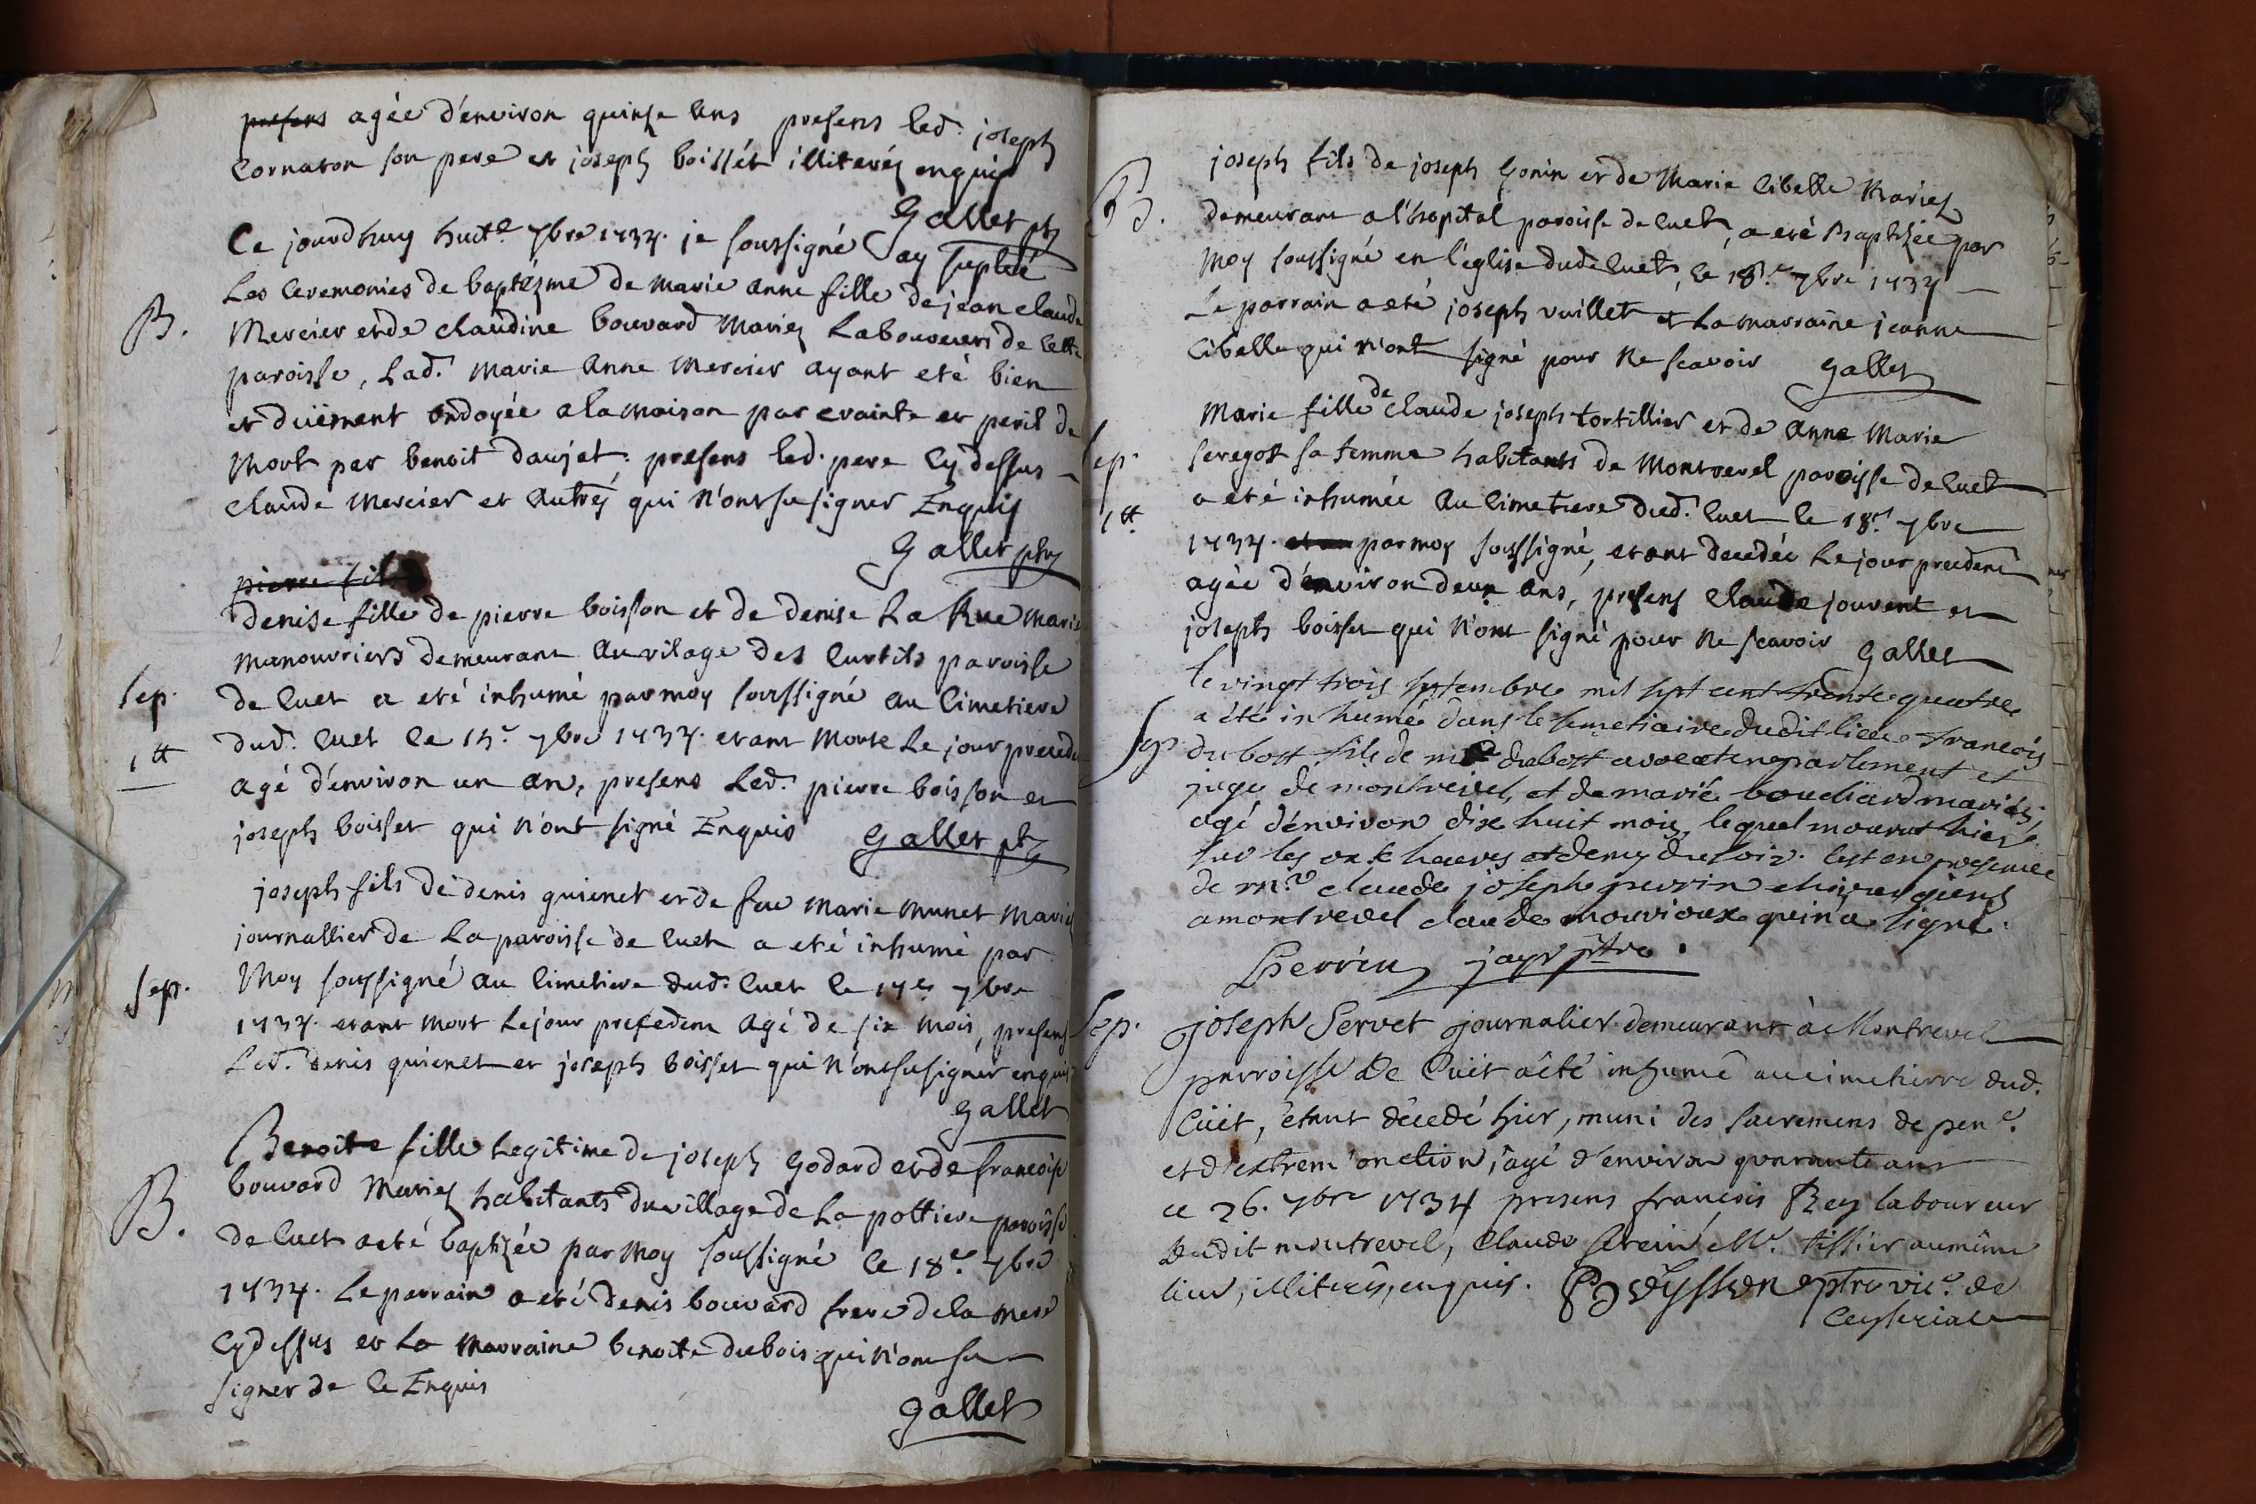 presens agée d'environ quinse ans presens led. joseph
Cornaton son pere et joseph boissét illiterés enquis
Gallet ptr
Ce jourdhuy huit.e 7bre 1734. je soussigné ay supleé
Les Ceremonies de baptesme de marie anne fille de jean claude
B.
Mercier et de claudine bouvard Mariez Laboureurs de cette
paroisse, Lad. Marie Anne Mercier ayant eté bien
et düement ondoyée a la maison par crainte et peril de
Mort par benoit daujat. presens led. pere cy dessus
Claude Mercier et Autres qui n'ont su signer Enquis
Gallet ptr
pierre fils
denise fille de pierre boisson et de denise La Rue Mariez
manouvriers demeurant au vilage des Curtils paroisse
Sep.
de Cuet a eté inhumé par moy soussigné au Cimetiere
dud. Cuet le 15.e 7bre 1734. etant Morte Le jour precedent
1 tt
agé d'environ un an, presens Led. pierre boisson et
joseph boisset qui n'ont signé Enquis Gallet ptr
joseph fils de denis guienet et de feu Marie Munet Mariez
journallier de La paroisse de Cuet a eté inhumé par
Sep.
Moy soussigné au Cimetiere dud. Cuet le 17e 7bre
1734. etant mort Le jour precedent Agé de six Mois, presens
Led. denis guienet et joseph boisset qui n'ont su signer enquis
Gallet
Benoite fille Legitime de joseph Godard et de francoise
B.
bouvard Mariez habitants du village de La pottiere paroisse
de Cuet a eté baptizée par Moy soussigné le 18.e 7bre
1734. Le parrain a eté denis bouvard frere de la mere
Cy dessus et La Marraine benoite dubois qui n'ont su
signer de ce Enquis
Gallet
joseph fils de joseph Gonin et de Marie Cibelle Mariez
B.
demeurant a l'hopital paroisse de Cuet, a eté Baptizée par
Moy soussigné en l'eglise dud. Cuet, le 18.e 7bre 1734
Le parrain a eté joseph vuillet et La marraine jeanne
Cibelle qui n'ont signé pour ne scavoir Gallet
Marie fille de Claude joseph tortillier et de Anne Marie
Sep.
seregot sa femme habitants de Montrevel paroisse de Cuet
1 tt
a eté inhumée au Cimetiere dud. Cuet le 18.e 7bre
1734. par moy soussigné, etant decedée Le jour precedent
agée d'environ deux ans, presens Claude jouvent et
joseph boisset qui n'ont signé pour ne scavoir Gallet
le vingt trois septembre mil sept cent trente quatre
a été inhumé dans le semetiaire dudit lieu francois
Sep.
dubost fils de mr dubost avocat en parlement et
juge de montrevel et de marie bouchard mariés,
agé d'environ dix huit mois, lequel mourut hier
sur les onse heures et demy du soir. C'est en presence
de m.re claude joseph perrin chirurgiens
a montrevel claude mouvioux qui n'a signé.
Perrin jayr ptre
Sep.
joseph Servet journalier demeurant à Montrevel
parroisse de Cuët a été inhumé au cimetierre dud.
Cüet, étant décedé hier, muni des sacremens de pen.e
et d'extrem'onction, agé d'environ quarante ans
ce 26. 7bre 1734 presens francois Rey laboureur
dudit montrevel, Claude Serein M.e tissier au même
lieu, illiterés, enquis. Beÿsson ptre vic.e de
Ceyseriat